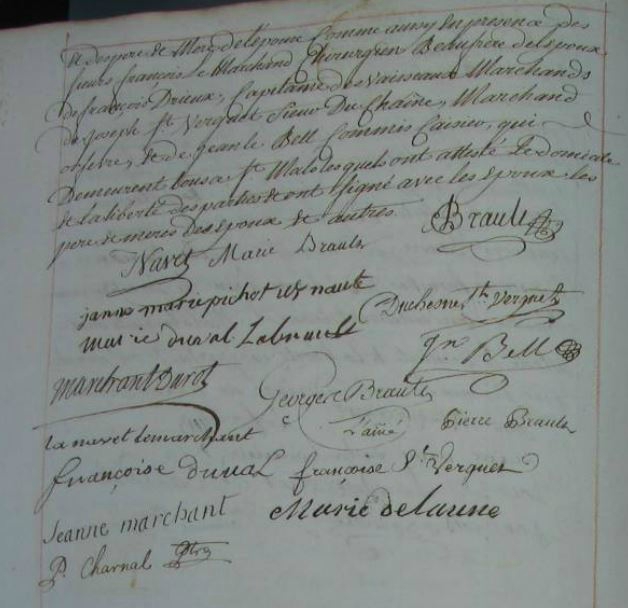 et de pere et Mere de l'epoux Comme aussy en presence des
sieurs françois le Marchand Chirurgien Beaufrère de l'epoux
de françois Drieux, Capitaine des vaisseaux Marchands
de Joseph St. Verguet Sieur Du Chaîne, Marchand
orfevre, et de jean le Bell Commis Caisier, qui
Demeurent tous a St. Malo lesquels ont attesté Le domicile
et la liberté des parties et ont signé avec les epoux les
pere et meres des Epoux et autres
Brault
Navet Marie Brault
janne marie pichot
Duchesne St. Verguet
marie duval
jn Bell
marchant
George Brault
l'ainé Pierre Brault
la navet lemarchant
françoise duval françoise St. Verguet
Jeanne marchant Marie delaune
P. Charnal ptre